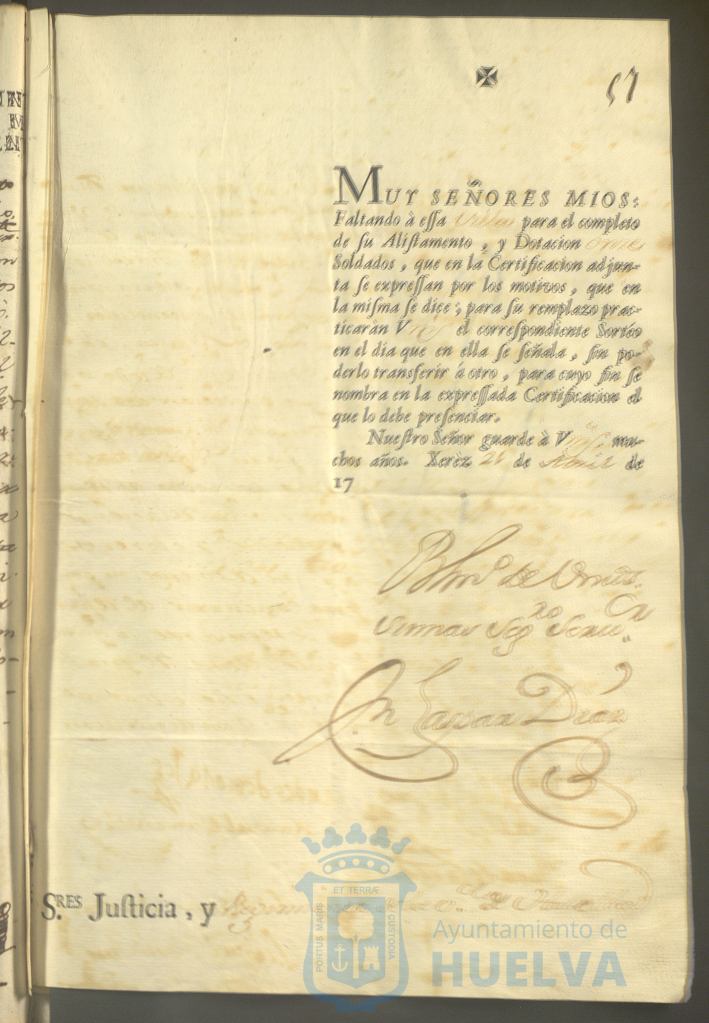 57
MUY SEÑORES MIOS:
Faltando à eſſa Villa para el completo
de ſu Aliſtamento, y Dotacion once
Soldados, que en la Certificacion adjun-
ta ſe expreſſan por los motivos, que en
la miſma ſe dice; para ſu remplazo prac-
ticaràn Vms el correſpondiente Sortèo
en el dia que en ella ſe ſeñala, ſin po-
derlo transferir à otro, para cuyo fin ſe
nombra en la expreſſada Certificacion el
que lo debe preſenciar.
Nueſtro Señor guarde à Vms. mu-
chos años. Xerèz 26 de Abril de
17
BlMo de Vmds.
Seg.ro
Dn Gaspar Diaz
S.RES Juſticia, y
PORTUS MARIS ET TERRÆ CUSTODIA
Ayuntamiento de
HUELVA